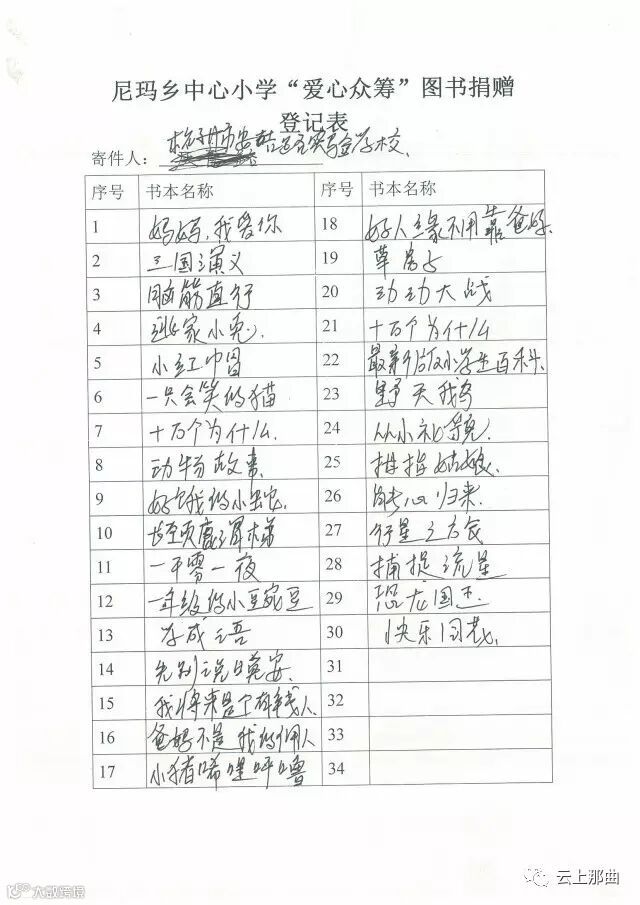 尼玛乡中心小学“爱心众筹”图书捐赠
登记表
寄件人：杭州市安吉路实验学校
序号 书本名称 序号 书本名称
1 妈妈,我爱你 18 好人缘不用靠爸妈
2 三国演义 19 草房子
3 脑筋直行 20 动动大战
4 逃家小兔 21 十万个为什么
5 小红帽 22 最新版小学生百科
6 一只会笑的猫 23 野天鹅
7 十万个为什么 24 从小礼貌
8 动物故事 25 拇指姑娘
9 好饿的小蛇 26 开心归来
10 长颈鹿滑梯 27 行星之
11 一千零一夜 28 捕捉流星
12 一年级的小豌豆 29 恐龙国王
13 学成语 30 快乐
14 先别说晚安 31
15 我将来是个有钱人 32
16 爸妈不是我的佣人 33
17 小猪唏哩呼噜 34
云上那曲
大数跨境